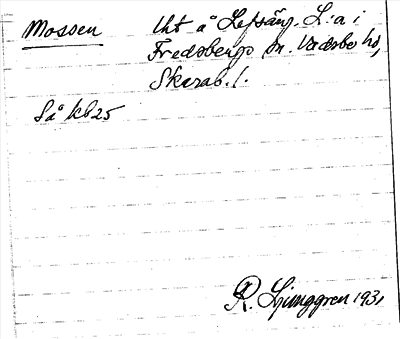 Mossen
Uht å Lefsäng. L:a i
Fredsbergs sn. Vadsbo hd,
Skarab. l.
Så kb 25
R. Ljunggren 1931